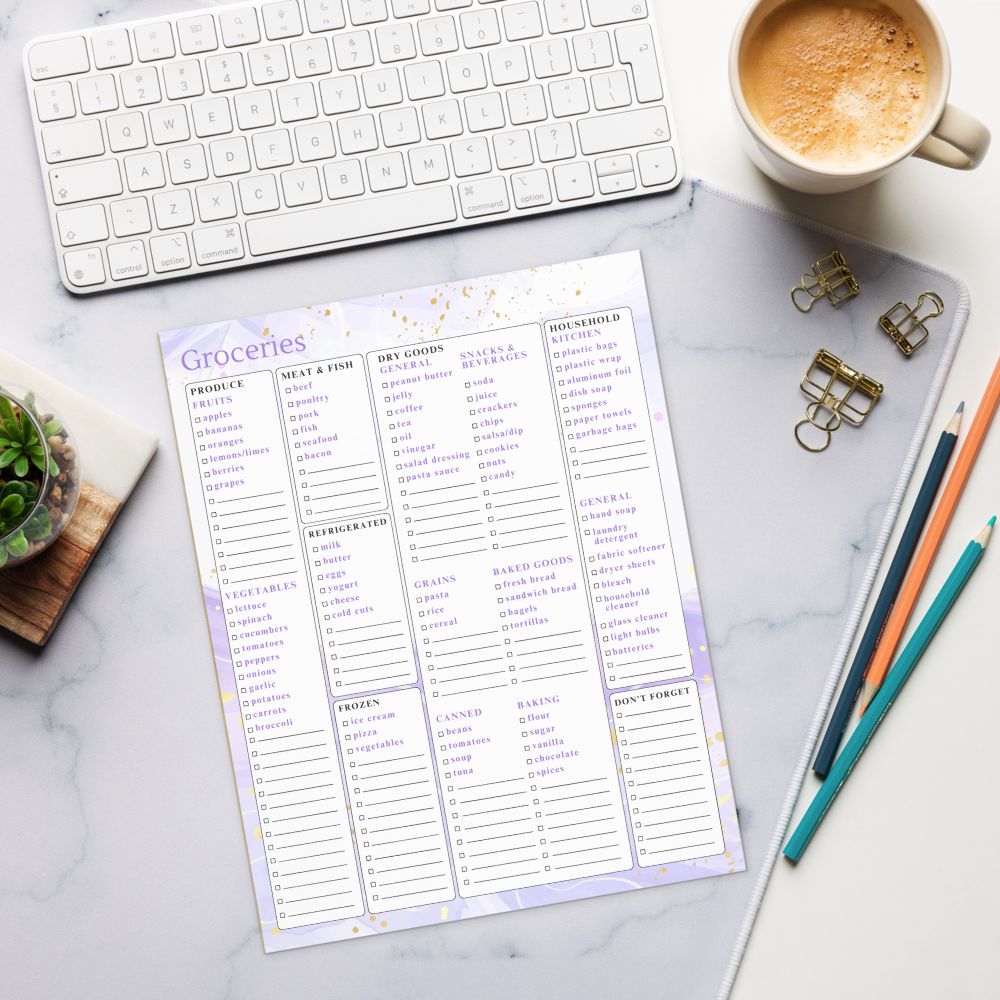 esc
F1
F2
F3
F4
F5
F6
F7
± §
! 1
@ 2
# 3
$ 4
% 5
^ 6
& 7
* 8
( 9
) 0
_ -
+ =
Q W E R T Y U I O P { [ } ]
A S D F G H J K L : ; " ' | \
~ ` Z X C V B N M < , > . ? /
fn
control
option
command
command
option
Groceries
PRODUCE
FRUITS
apples
bananas
oranges
lemons/limes
berries
grapes
VEGETABLES
lettuce
spinach
cucumbers
tomatoes
peppers
onions
garlic
potatoes
carrots
broccoli
MEAT & FISH
beef
poultry
pork
fish
seafood
bacon
REFRIGERATED
milk
butter
eggs
yogurt
cheese
cold cuts
FROZEN
ice cream
pizza
vegetables
DRY GOODS
GENERAL
peanut butter
jelly
coffee
tea
oil
vinegar
salad dressing
pasta sauce
SNACKS &
BEVERAGES
soda
juice
crackers
chips
salsa/dip
cookies
nuts
candy
GRAINS
pasta
rice
cereal
BAKED GOODS
fresh bread
sandwich bread
bagels
tortillas
CANNED
beans
tomatoes
soup
tuna
BAKING
flour
sugar
vanilla
chocolate
spices
HOUSEHOLD
KITCHEN
plastic bags
plastic wrap
aluminum foil
dish soap
sponges
paper towels
garbage bags
GENERAL
hand soap
laundry
detergent
fabric softener
dryer sheets
bleach
household
cleaner
glass cleaner
light bulbs
batteries
DON'T FORGET